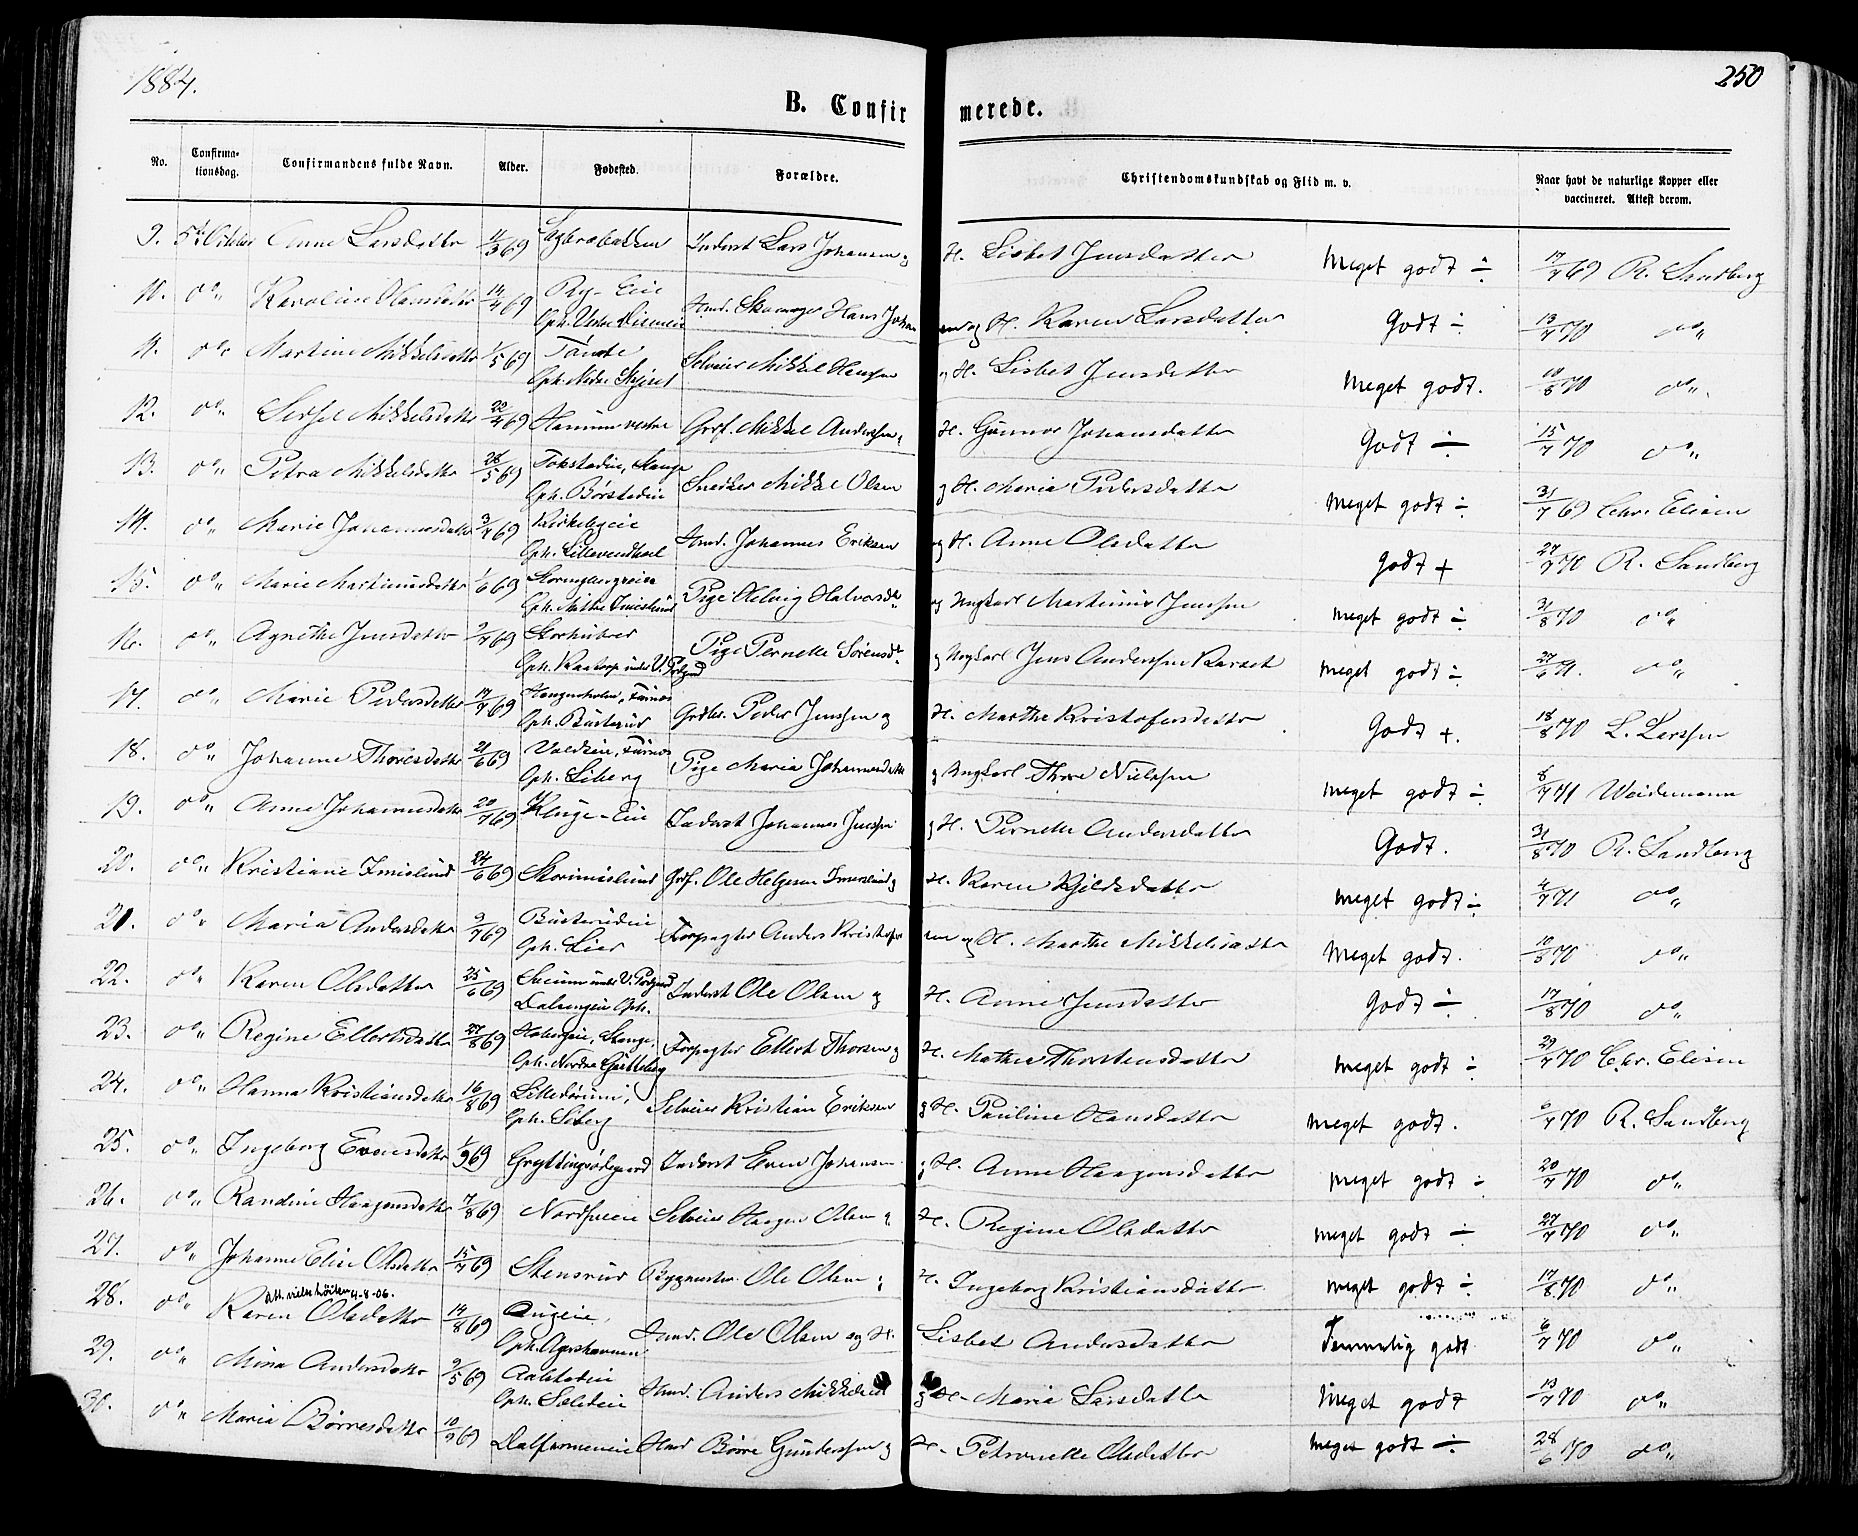 1884.
250
B. Confirmerede.
No. Confirmationsdag. Confirmandens fulde Navn. Alder. Fødested. Forældre. Christendomskundskab og Flid m. v. Naar havt de naturlige Kopper eller vaccineret. Attest derom.
9. 5te October Anne Larsdatter 11/3 69 Inderst Lars Johansen og H. Lisbet Jensdatter Meget godt ÷ 17/7 69 R. Sandberg
10. do„ Karoline Hansdatter 14/4 69 Ry-Eie
Oph. Vestre Disenseie Hmd. Skomager Hans Johansen og H. Karen Larsdatter Godt ÷ 13/7 70 do„
11. do„ Martine Mikkelsdatter 1/5 69 Tønste
Oph. Nedre Skjeset Selveier Mikkel Hansen og H. Lisbet Jensdatter Meget godt. 10/8 70 do„
12. do„ Sirsel Mikkelsdatter 20/4 69 Hommen vestre Grdf. Mikkel Anderssen og H. Gunnor Johansdatter Godt ÷ 15/7 70 do„
13. do„ Petra Mikkelsdatter 28/5 69 Tokstadeie, Stange
Oph. Børstadeie Snedker Mikkel Olsen og H. Maria Pedersdatter Meget godt ÷ 31/7 69 Chr. Elisen
14. do„ Marie Johannesdatter 3/7 69 Kirkebyeie
Oph. Hmd. Johannes Eriksen og H. Anne Olsdatter Godt + 27/7 70 R. Sandberg
15. do„ Marie Martinusdatter 1/6 69
Oph. Pige Helvig Halvorsdtr og Ungkarl Martinus Jenssen Meget godt ÷ 31/8 70 do„
16. do„ Agnethe Jensdatter 2/7 69
Oph. Kaatorp under V. Pige Pernelle Sørensdtr og Ungkarl Jens Anderssen Meget godt ÷ 27/6 71. do„
17. do„ Marie Pedersdatter 17/7 69
Oph. Busterud Grdbr. Peder Jenssen og H. Marthe Kristofersdatter Godt +. 18/8 70 L. Larssen
18. do„ Johanne Thoresdatter 21/6 69
Oph. Liberg Pige Maria Johannesdatter og Ungkarl Thore Nielssen Meget godt ÷ 8/7 71 Weidemann
19. do„ Anne Johannesdatter 20/7 69 Kluge-Eie Inderst Johannes Jenssen og H. Pernelle Andersdatter Godt. 31/8 70 R. Sandberg
20. do„ Kristiane Imislund 24/6 69 Skorimislund Grdf. Ole Helgesen Imerslund og H. Karen Kjeldsdatter Meget godt ÷ 4/7 71 do„
21. do„ Maria Andersdatter 9/7 69 Busterudeie
Oph. Lier Forpagter Anders Kristofersen og H. Marthe Mikkelsdatter Meget godt. 10/8 70 do„
22. do„ Karen Olsdatter 25/6 69
Dalsengeie Oph. Inderst Ole Olsen og H. Anne Jensdatter Godt ÷ 17/8 70 do„
23. do„ Regine Ellertsdatter 27/8 69 Stange,
Oph. Nordre Forpagter Ellert Thorsen og H. Mathea Thorstensdatter Meget godt ÷ 29/7 70 Chr. Elisen
24. do„ Hanna Kristiansdatter 16/8 69
Oph. Liberg Selveier Kristian Eriksen og H. Pauline Hansdatter Meget godt. 6/7 70 R. Sandberg
25. do„ Ingeborg Evensdatter 1/9 69 Gryttingsødegaard Inderst Even Johansen og H. Anne Haagensdatter Meget godt ÷ 20/7 70 do„
26. do„ Randine Haagensdatter 7/8 69 Nordsveeie Selveier Haagen Olsen og H. Regine Olsdatter Meget godt ÷ 27/7 70 do„
27. do„ Johanne Elise Olsdatter 15/7 69 Stensrud Bygmester Ole Olsen og H. Ingeborg Kristiansdatter Meget godt ÷ 17/8 70 do„
Att. 4-8-06.
28. do„ Karen Olsdatter 14/8 69
Oph. Hmd. Ole Olsen og H. Lisbet Andersdatter Temmelig godt 6/7 70 do„
29. do„ Mina Andersdatter 9/5 69 Aalstadeie
Oph. Hmd. Anders Mikkelsen og H. Maria Larsdatter Meget godt 13/7 70 do„
30. do„ Maria Børresdatter 10/7 69 Dalfarmeneie Hmd Børre Gunderssen og H. Petronelle Olsdatter Meget godt ÷ 28/6 70 do„